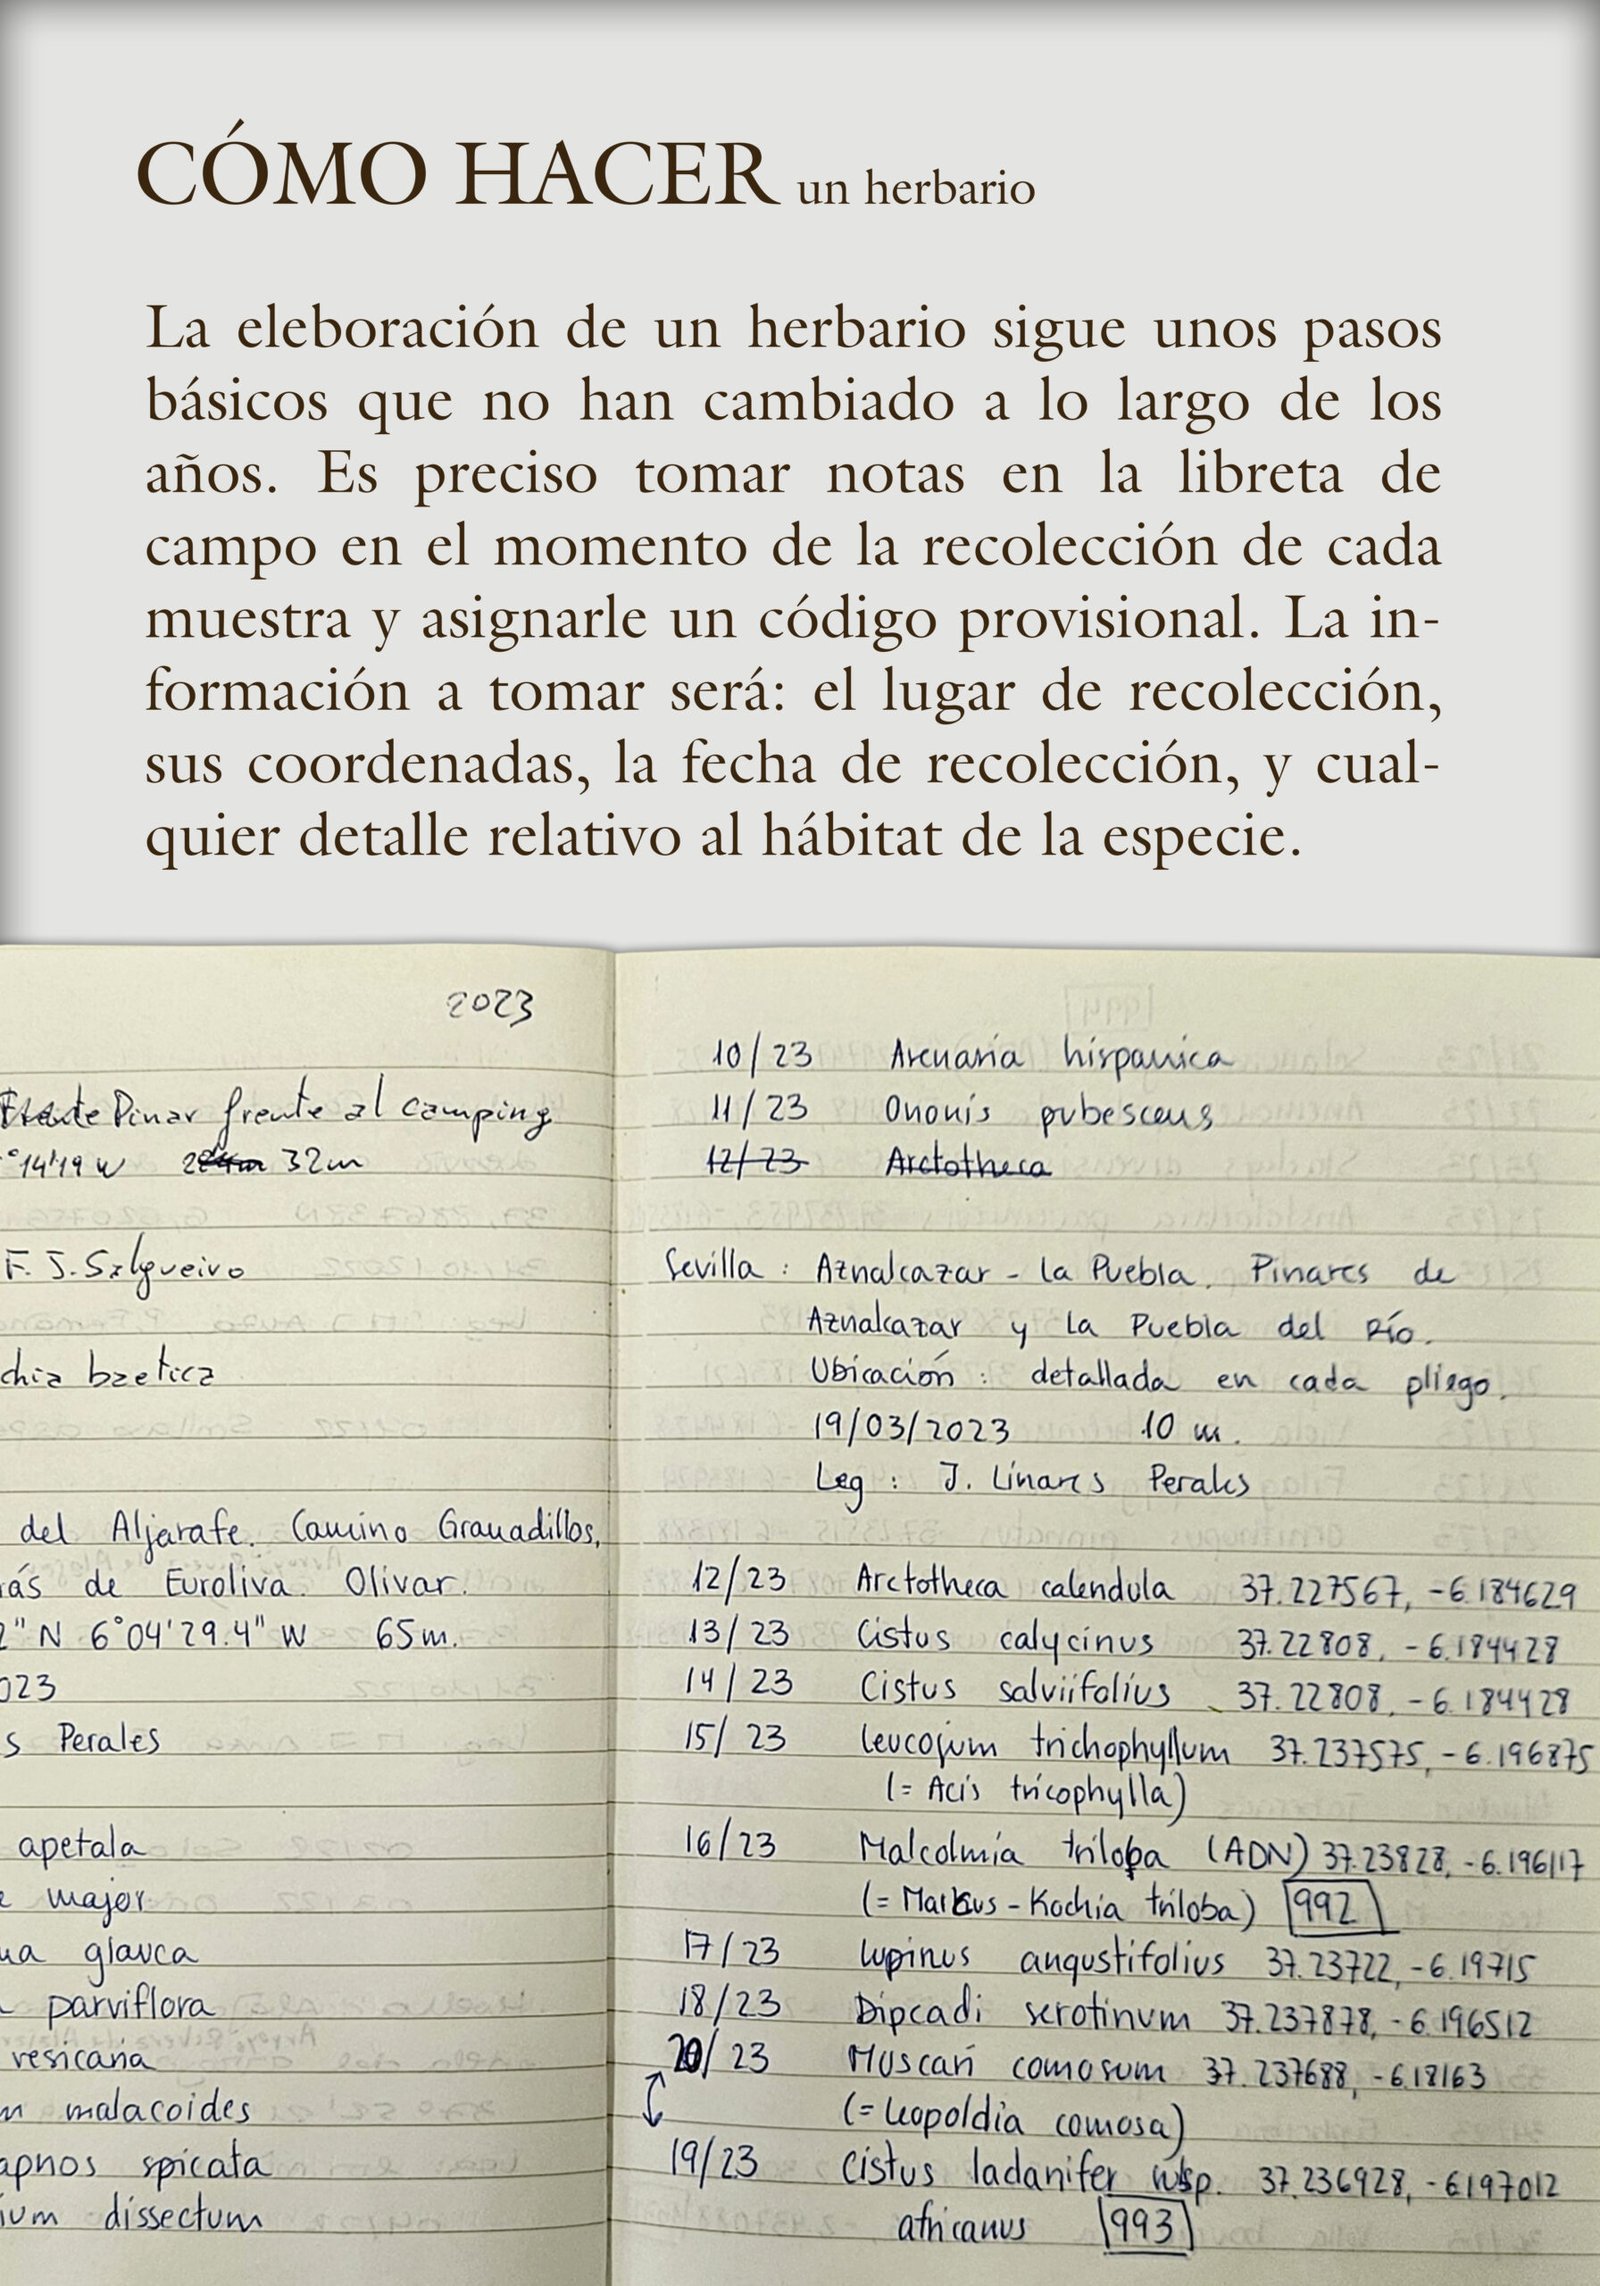 CÓMO HACER un herbario
La eleboración de un herbario sigue unos pasos
básicos que no han cambiado a lo largo de los
años. Es preciso tomar notas en la libreta de
campo en el momento de la recolección de cada
muestra y asignarle un código provisional. La in-
formación a tomar será: el lugar de recolección,
sus coordenadas, la fecha de recolección, y cual-
quier detalle relativo al hábitat de la especie.
2023
Pinar frente al camping
°14'19 W 32m
F. J. Salgueiro
chia baetica
del Aljarafe. Camino Granadillos,
rás de Euroliva. Olivar.
2" N 6°04'29.4" W 65m.
023
s Perales
apetala
e major
ua glauca
parviflora
vesicaria
m malacoides
apnos spicata
ium dissectum
10/23 Arenaria hispanica
11/23 Ononis pubescens
12/23 Arctotheca
Sevilla: Aznalcazar - La Puebla. Pinares de
Aznalcazar y La Puebla del Río.
Ubicación: detallada en cada pliego.
19/03/2023 10 m.
Leg: J. Linares Perales
12/23 Arctotheca calendula 37.227567, -6.184629
13/23 Cistus calycinus 37.22808, -6.184428
14/23 Cistus salviifolius 37.22808, -6.184428
15/23 Leucojum trichophyllum 37.237575, -6.196875
(= Acis tricophylla)
16/23 Malcolmia triloba (ADN) 37.23828, -6.196117
(= Marcus-Kochia triloba) 992
17/23 Lupinus angustifolius 37.23722, -6.19715
18/23 Dipcadi serotinum 37.237878, -6.196512
20/23 Muscari comosum 37.237688, -6.18163
(= Leopoldia comosa)
19/23 Cistus ladanifer subsp. 37.236928, -6.197012
africanus 993